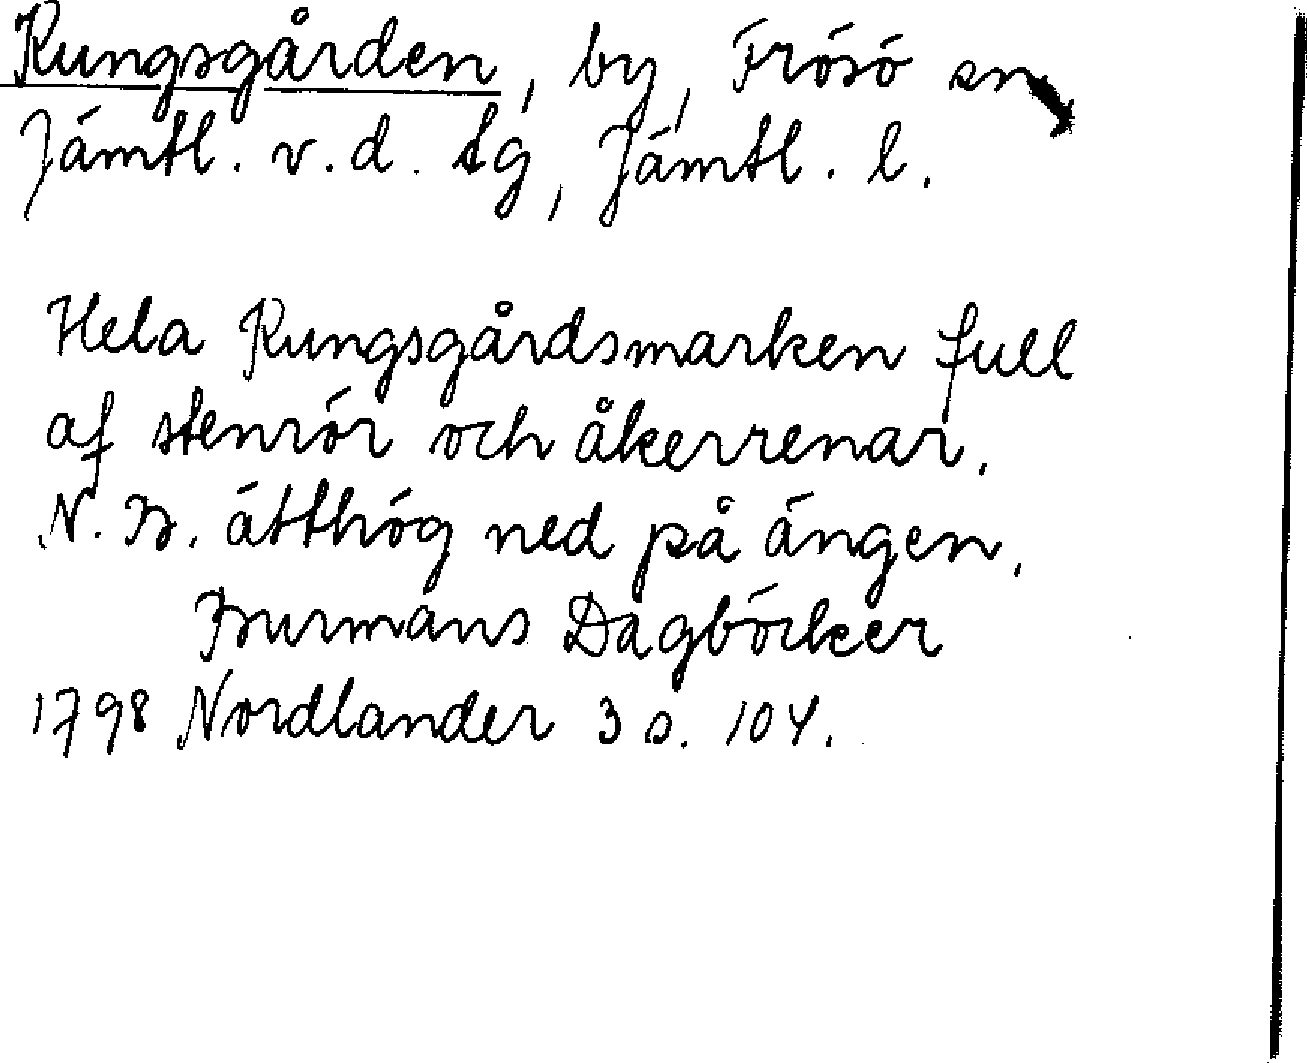 Kungsgården, by, Frösö sn
Jämtl. v. d. tg, Jämtl. l.
Hela Kungsgårdsmarken full
af stenrör och åkerrenar.
N. B. ätthög ned på ängen.
Burmans Dagböcker
1798 Nordlander 3 s. 104.